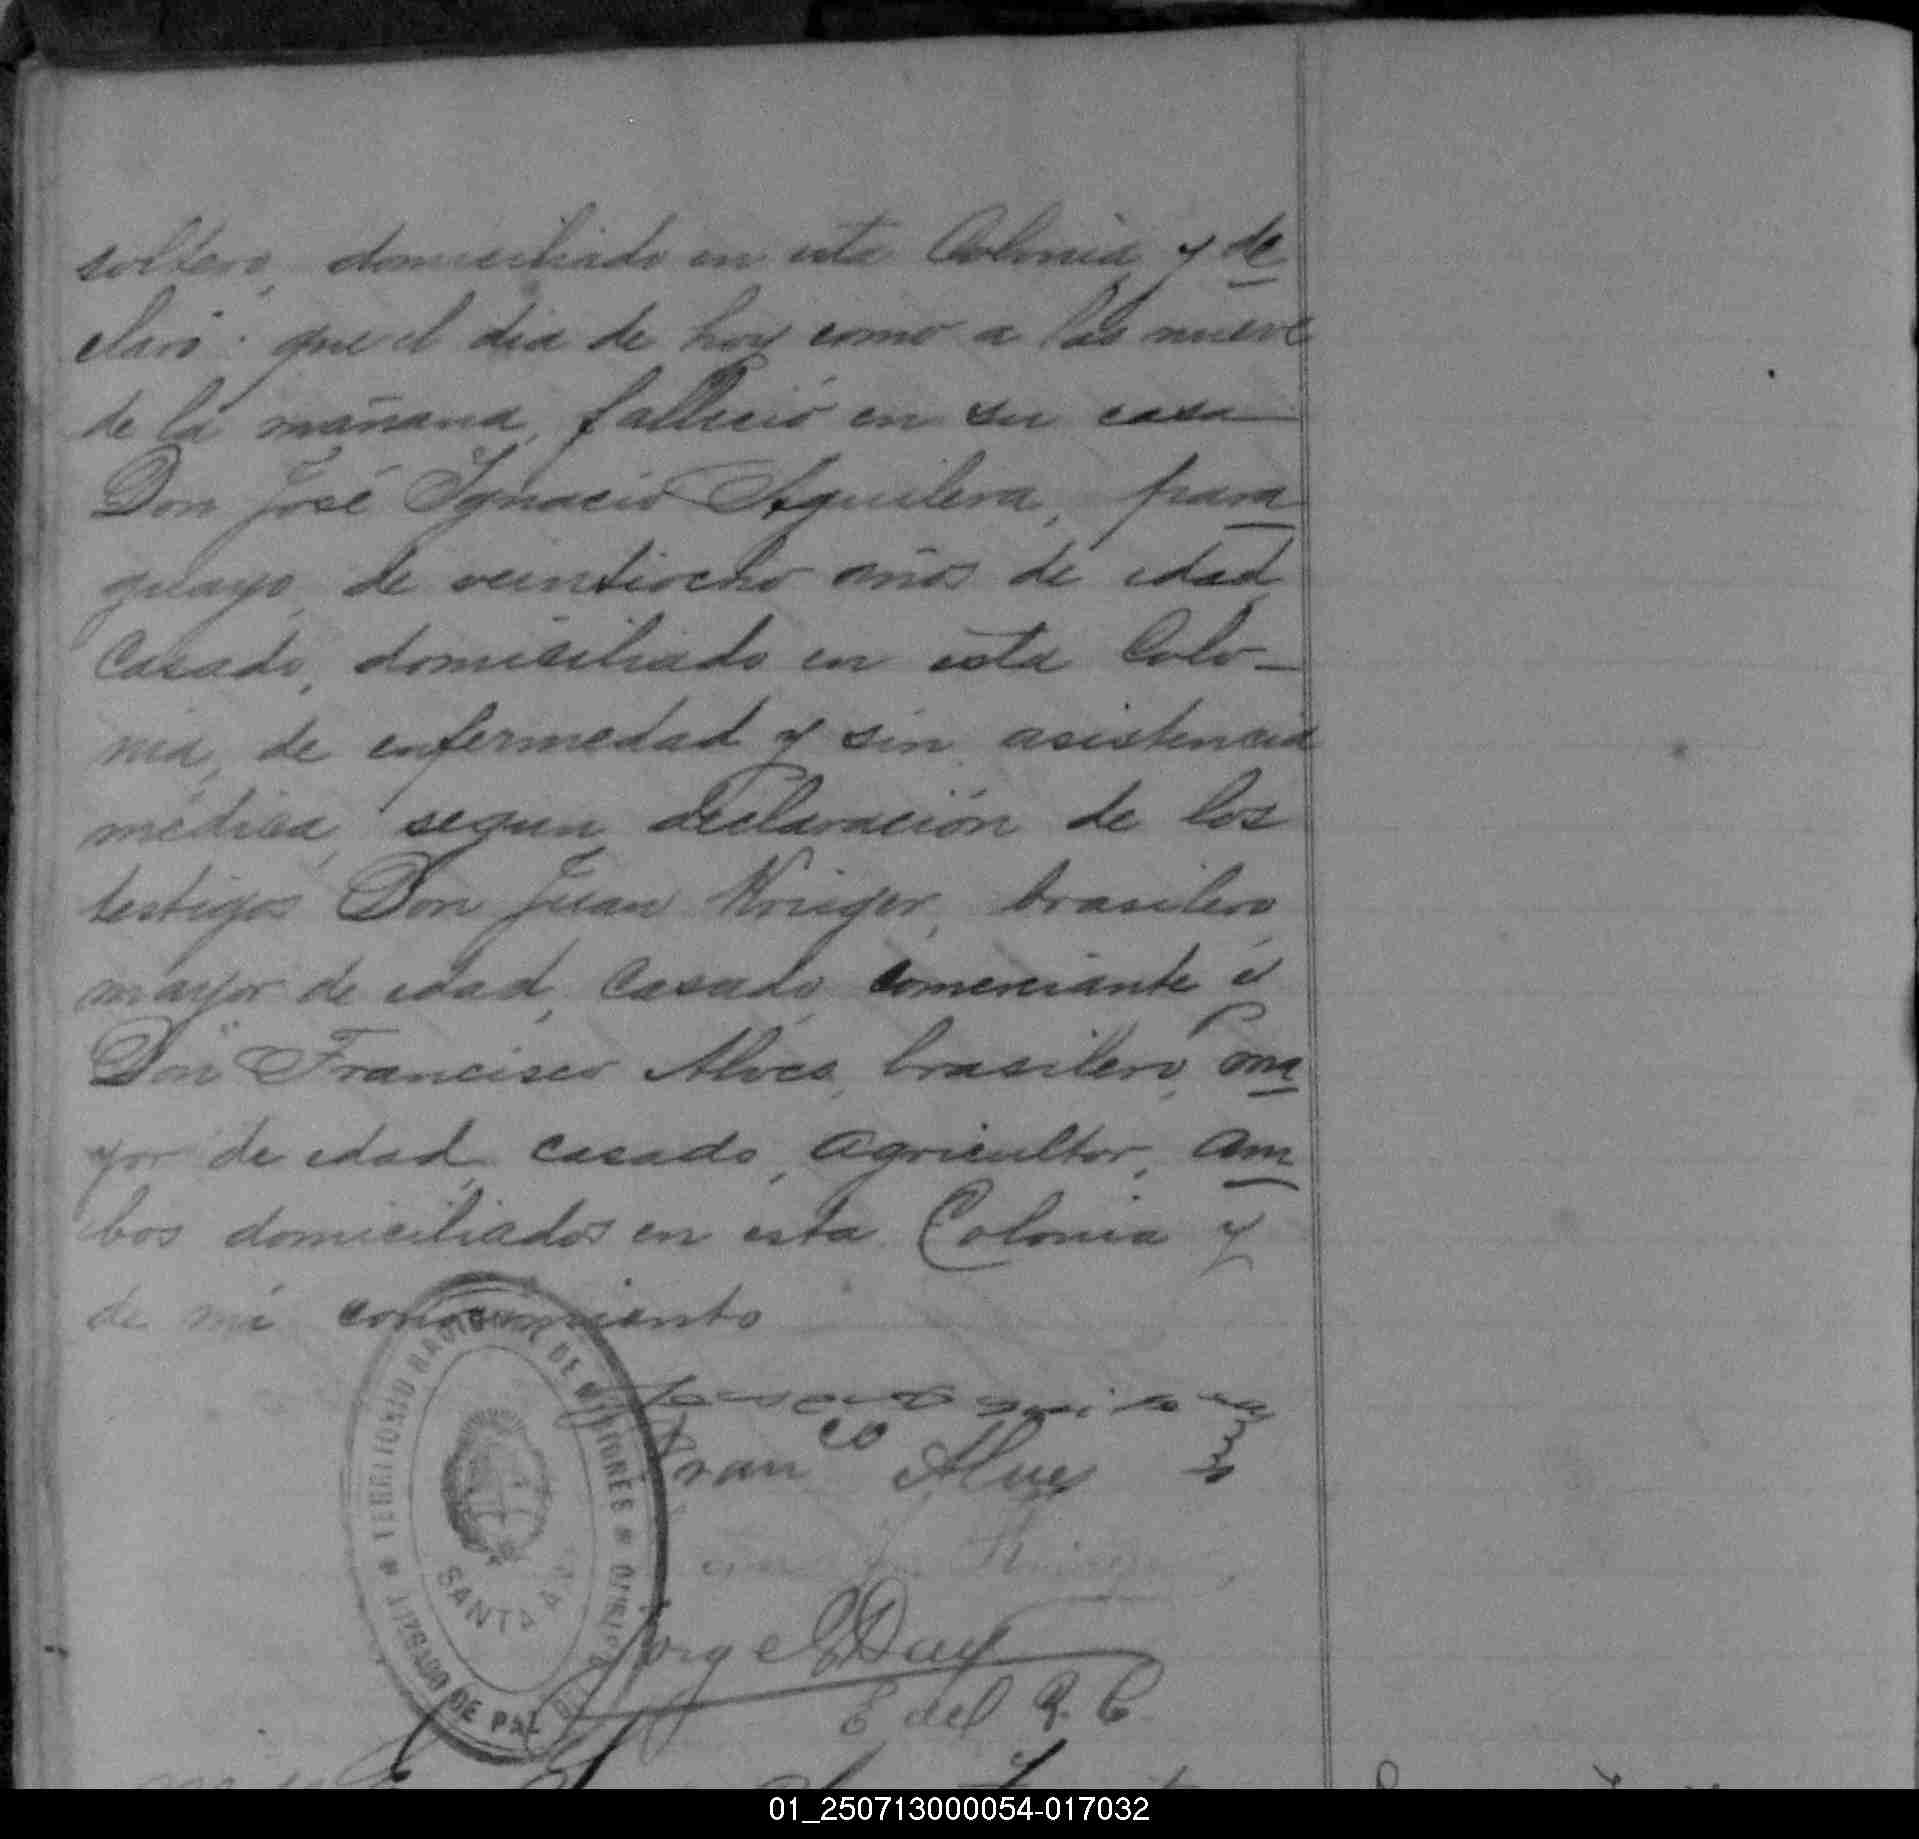 soltero, domiciliado en esta Colonia y de
claró: que el dia de hoy como a las nueve
de la mañana, falleció en su casa
Don José Ignacio Aguilera, para
guayo, de veintiocho años de edad
Casado, domiciliado en esta Colo-
nia, de enfermedad y sin asistencia
médica, segun declaración de los
testigos Don Juan Kriger, brasilero,
mayor de edad, casado, comerciante é
Don Francisco Alves, brasilero, ma
yor de edad, casado, agricultor, am
bos domiciliados en esta Colonia y
de mi conocimiento
Franco Alves
Jorge Day
E del R. C.
TERRITORIO NACIONAL DE MISIONES
JUZGADO DE PAZ
SANTA ANA
01_250713000054-017032